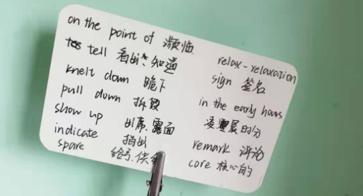 on the point of 濒临
tell 看出、知道
knelt down 跪下
pull down 拆毁
show up 出席、露面
indicate 指出
spare
relax - relaxation
sign 签名
in the early hours
凌晨时分
remark 评论
core 核心的